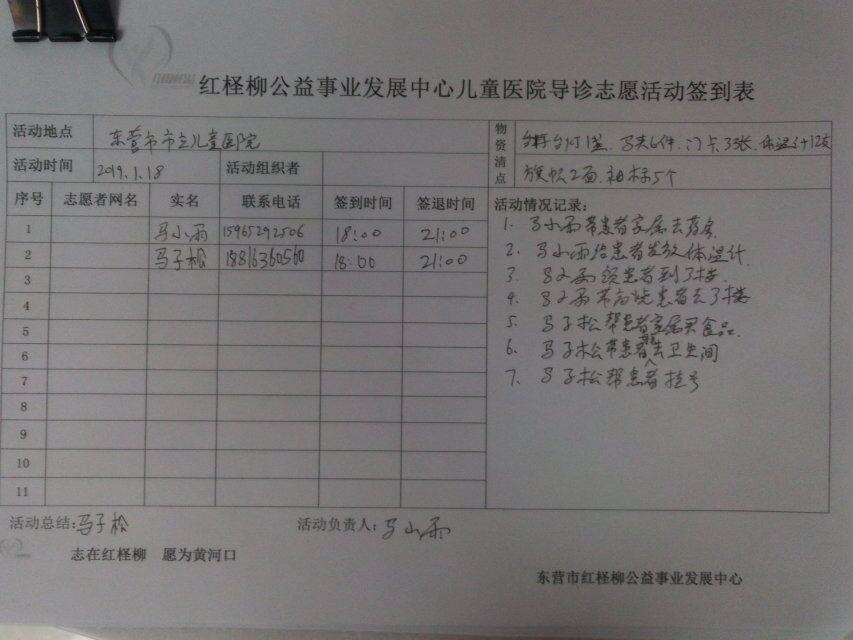 红柽柳公益事业发展中心儿童医院导诊志愿活动签到表
活动地点 东营市市立儿童医院
物资清点 台灯1盏、马夹6件、门卡3张、体温计12支
旗帜2面、袖标5个
活动时间 2019.1.18 活动组织者
序号 志愿者网名 实名 联系电话 签到时间 签退时间
1 马小雨 15965292506 18:00 21:00
2 马子松 18816360560 18:00 21:00
3
4
5
6
7
8
9
10
11
活动情况记录:
1. 马小雨带患者家属去药房
2. 马小雨给患者发放体温计.
3. 马小雨领患者到3楼.
4. 马小雨带高烧患者去3楼
5. 马子松帮患者家属买食品.
6. 马子松带患者家属去卫生间
7. 马子松帮患者挂号
活动总结:马子松 活动负责人:马小雨
志在红柽柳 愿为黄河口
东营市红柽柳公益事业发展中心